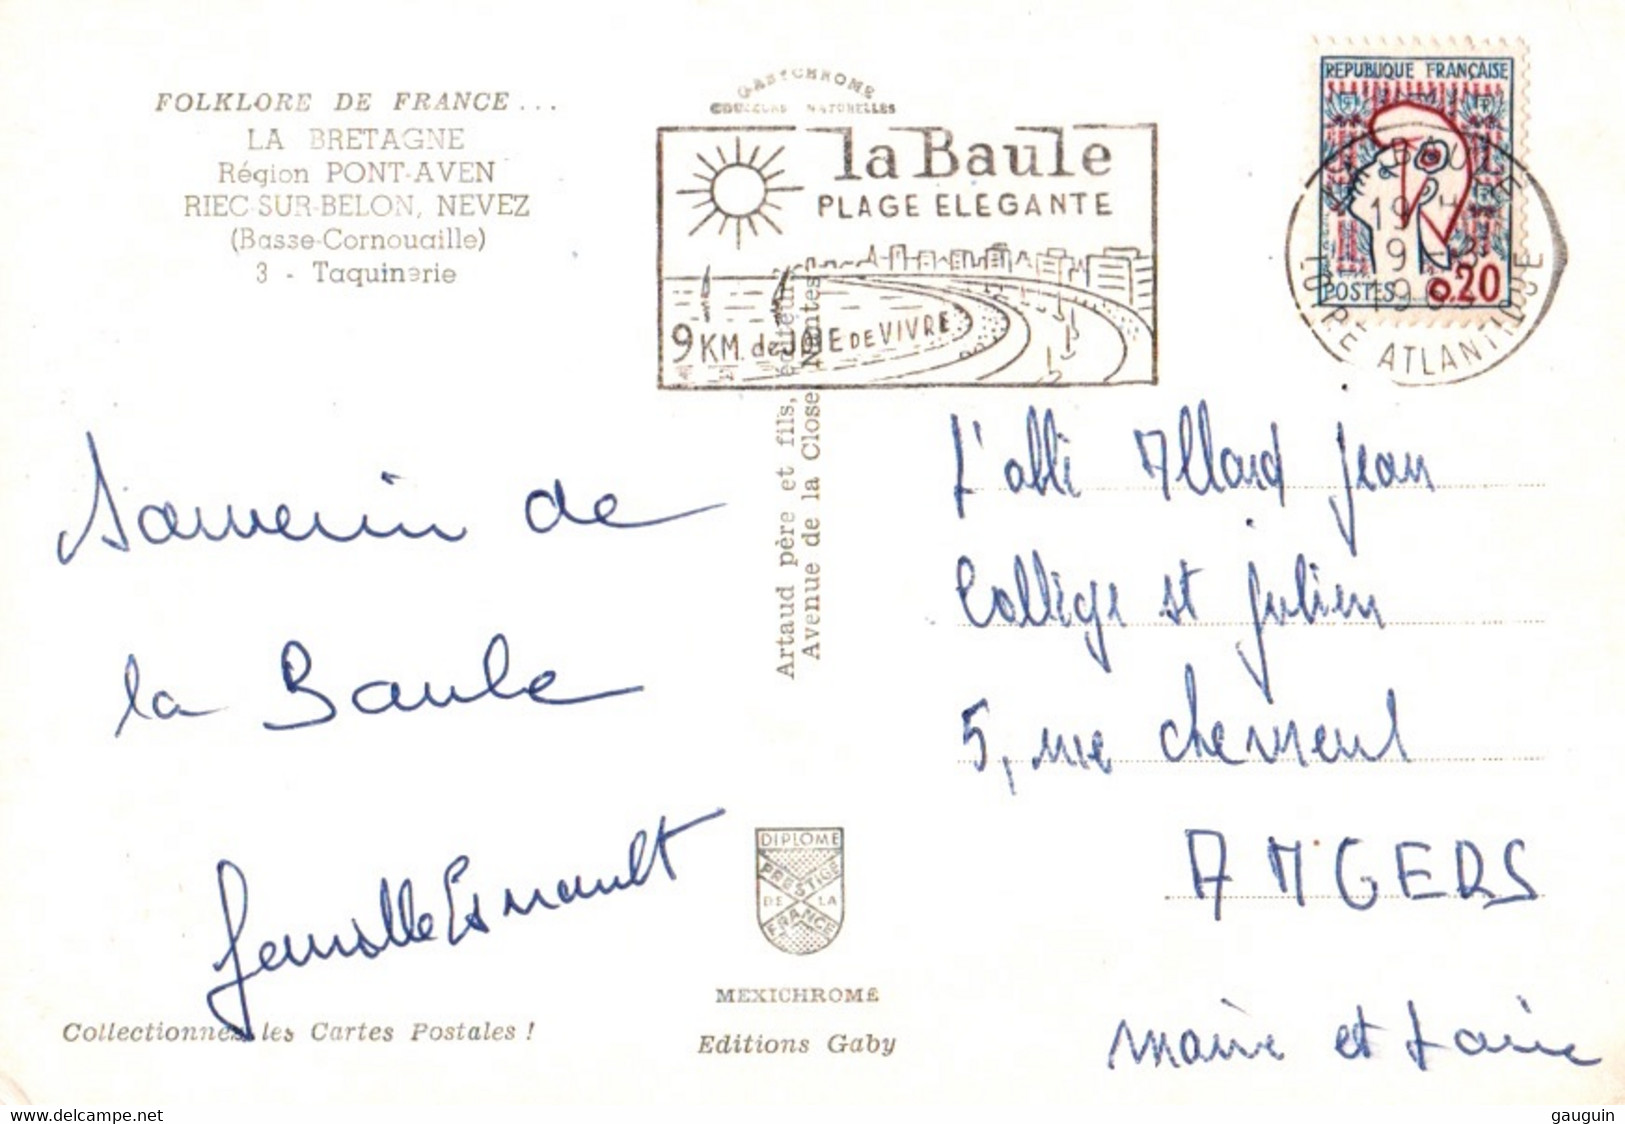 FOLKLORE DE FRANCE...
LA BRETAGNE
Région PONT-AVEN
RIEC-SUR-BELON, NEVEZ
(Basse-Cornouaille)
3 - Taquinerie
GABYCHROME
COULEURS NATURELLES
la Baule
PLAGE ELEGANTE
9 KM. de JOIE DE VIVRE
REPUBLIQUE FRANÇAISE
POSTES 0.20
LA BAULE
19 H
19
LOIRE ATLANTIQUE
Artaud père et fils, éditeurs
Avenue de la Close Nantes
Souvenir de
la Baule
famille Esnault
L'abbé Allard Jean
Collège st Julien
5, rue chevreul
ANGERS
Maine et Loire
DIPLOME
PRESTIGE
DE LA
FRANCE
MEXICHROME
Editions Gaby
Collectionnez les Cartes Postales !
delcampe.net
gauguin